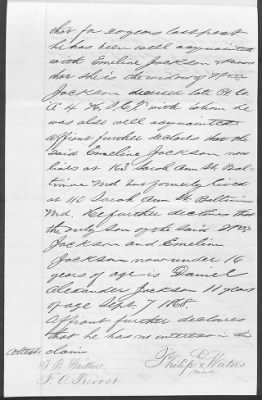 that for 20 years last past
he has been well acquainted
with Emeline Jackson & knows
that she is the widow of Wm
Jackson deceased late Co
A 4 U.S.C.T. with whom he
was also well acquainted
affiant further declares that the
said Emeline Jackson now
lives at 163 Sarah Ann St. Bal-
timore Md has formerly lived
at 116 Sarah Ann St. Baltimore
Md. He further declares that
the only son of the said Wm
Jackson and Emeline
Jackson now under 16
years of age is Daniel
Alexander Jackson 11 years
of age Sept 7 1868.
Affiant further declares
that he has no interest in this
Attest claim
Philip X Waters
mark